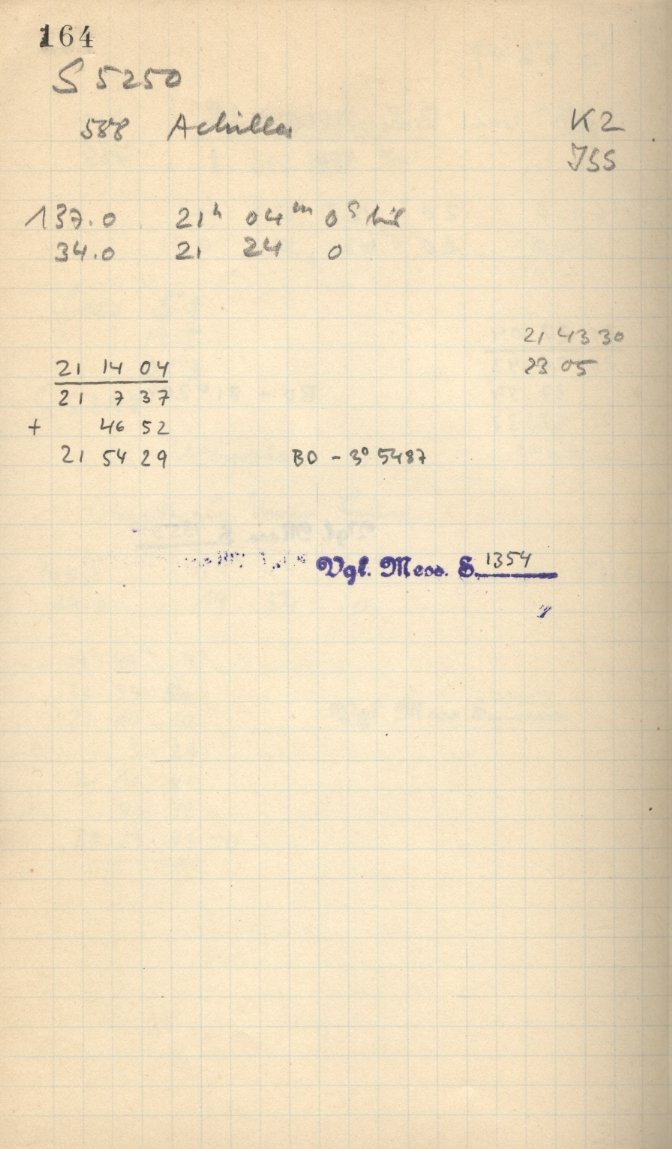 164
S 5250
588 Achilles K2
JSS
137.0 21h 04m 0s
34.0 21 24 0
21 43 30
23 05
21 14 04
21 7 37
+ 46 52
21 54 29 BD - 3° 5487
Vgl. Mess. S. 1354